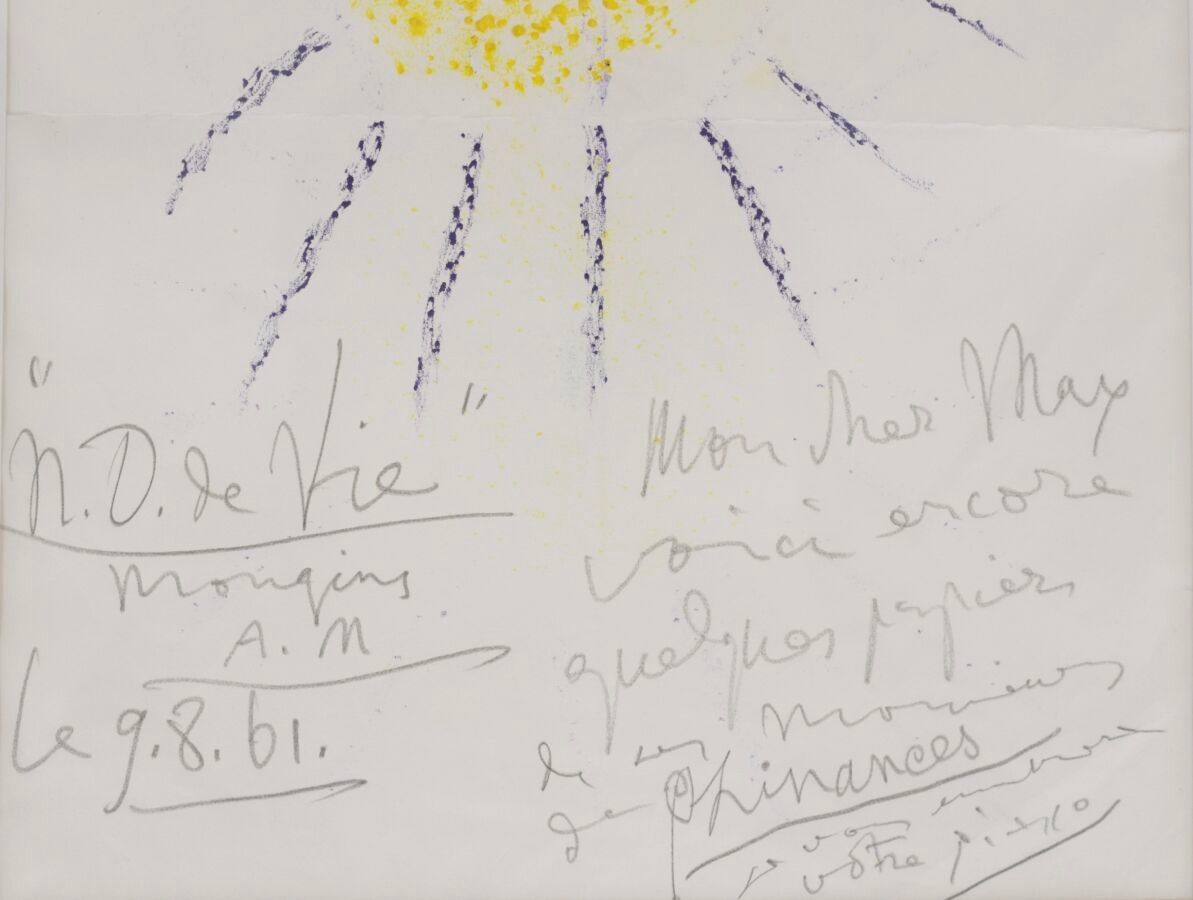 "N.D. de Vie"
Mougins
A. M
le 9.8.61.
Mon cher Max
voici encore
quelques papiers
de ces Monsieurs
de Phinances
je vous embrasse
votre picasso